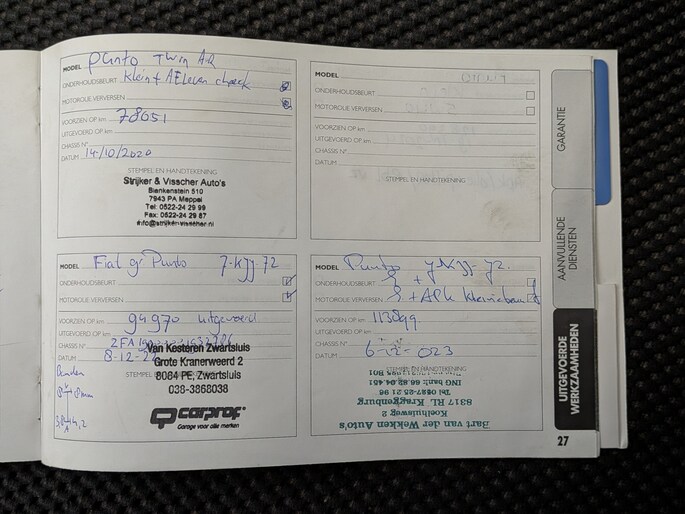 MODEL Punto Twin Air
ONDERHOUDSBEURT klein + Aflever check
MOTOROLIE VERVERSEN
VOORZIEN OP km 78651
UITGEVOERD OP km
CHASSIS N°
DATUM 14/10/2020
STEMPEL EN HANDTEKENING
Strijker & Visscher Auto's
Blankenstein 510
7943 PA Meppel
Tel: 0522-24 29 99
Fax: 0522-24 29 87
info@strijker-visscher.nl
MODEL
ONDERHOUDSBEURT
MOTOROLIE VERVERSEN
VOORZIEN OP km
UITGEVOERD OP km
CHASSIS N°
DATUM
STEMPEL EN HANDTEKENING
MODEL Fiat gr Punto 7-KJJ-72
ONDERHOUDSBEURT
MOTOROLIE VERVERSEN
VOORZIEN OP km 94970 uitgevoerd
UITGEVOERD OP km
CHASSIS N°
DATUM 8-12-
STEMPEL
Van Kesteren Zwartsluis
Grote Kranerweerd 2
8064 PE, Zwartsluis
038-3868038
carprof
Garage voor alle merken
Banden
MODEL Punto 7KJJ-72.
ONDERHOUDSBEURT
MOTOROLIE VERVERSEN + APK kleine beurt
VOORZIEN OP km 113899
UITGEVOERD OP km
CHASSIS N°
DATUM 6-12-023
STEMPEL EN HANDTEKENING
Bart van der Wekken Auto's
Koelhuisweg 2
8317 RL Kraggenburg
GARANTIE
AANVULLENDE
DIENSTEN
UITGEVOERDE
WERKZAAMHEDEN
27